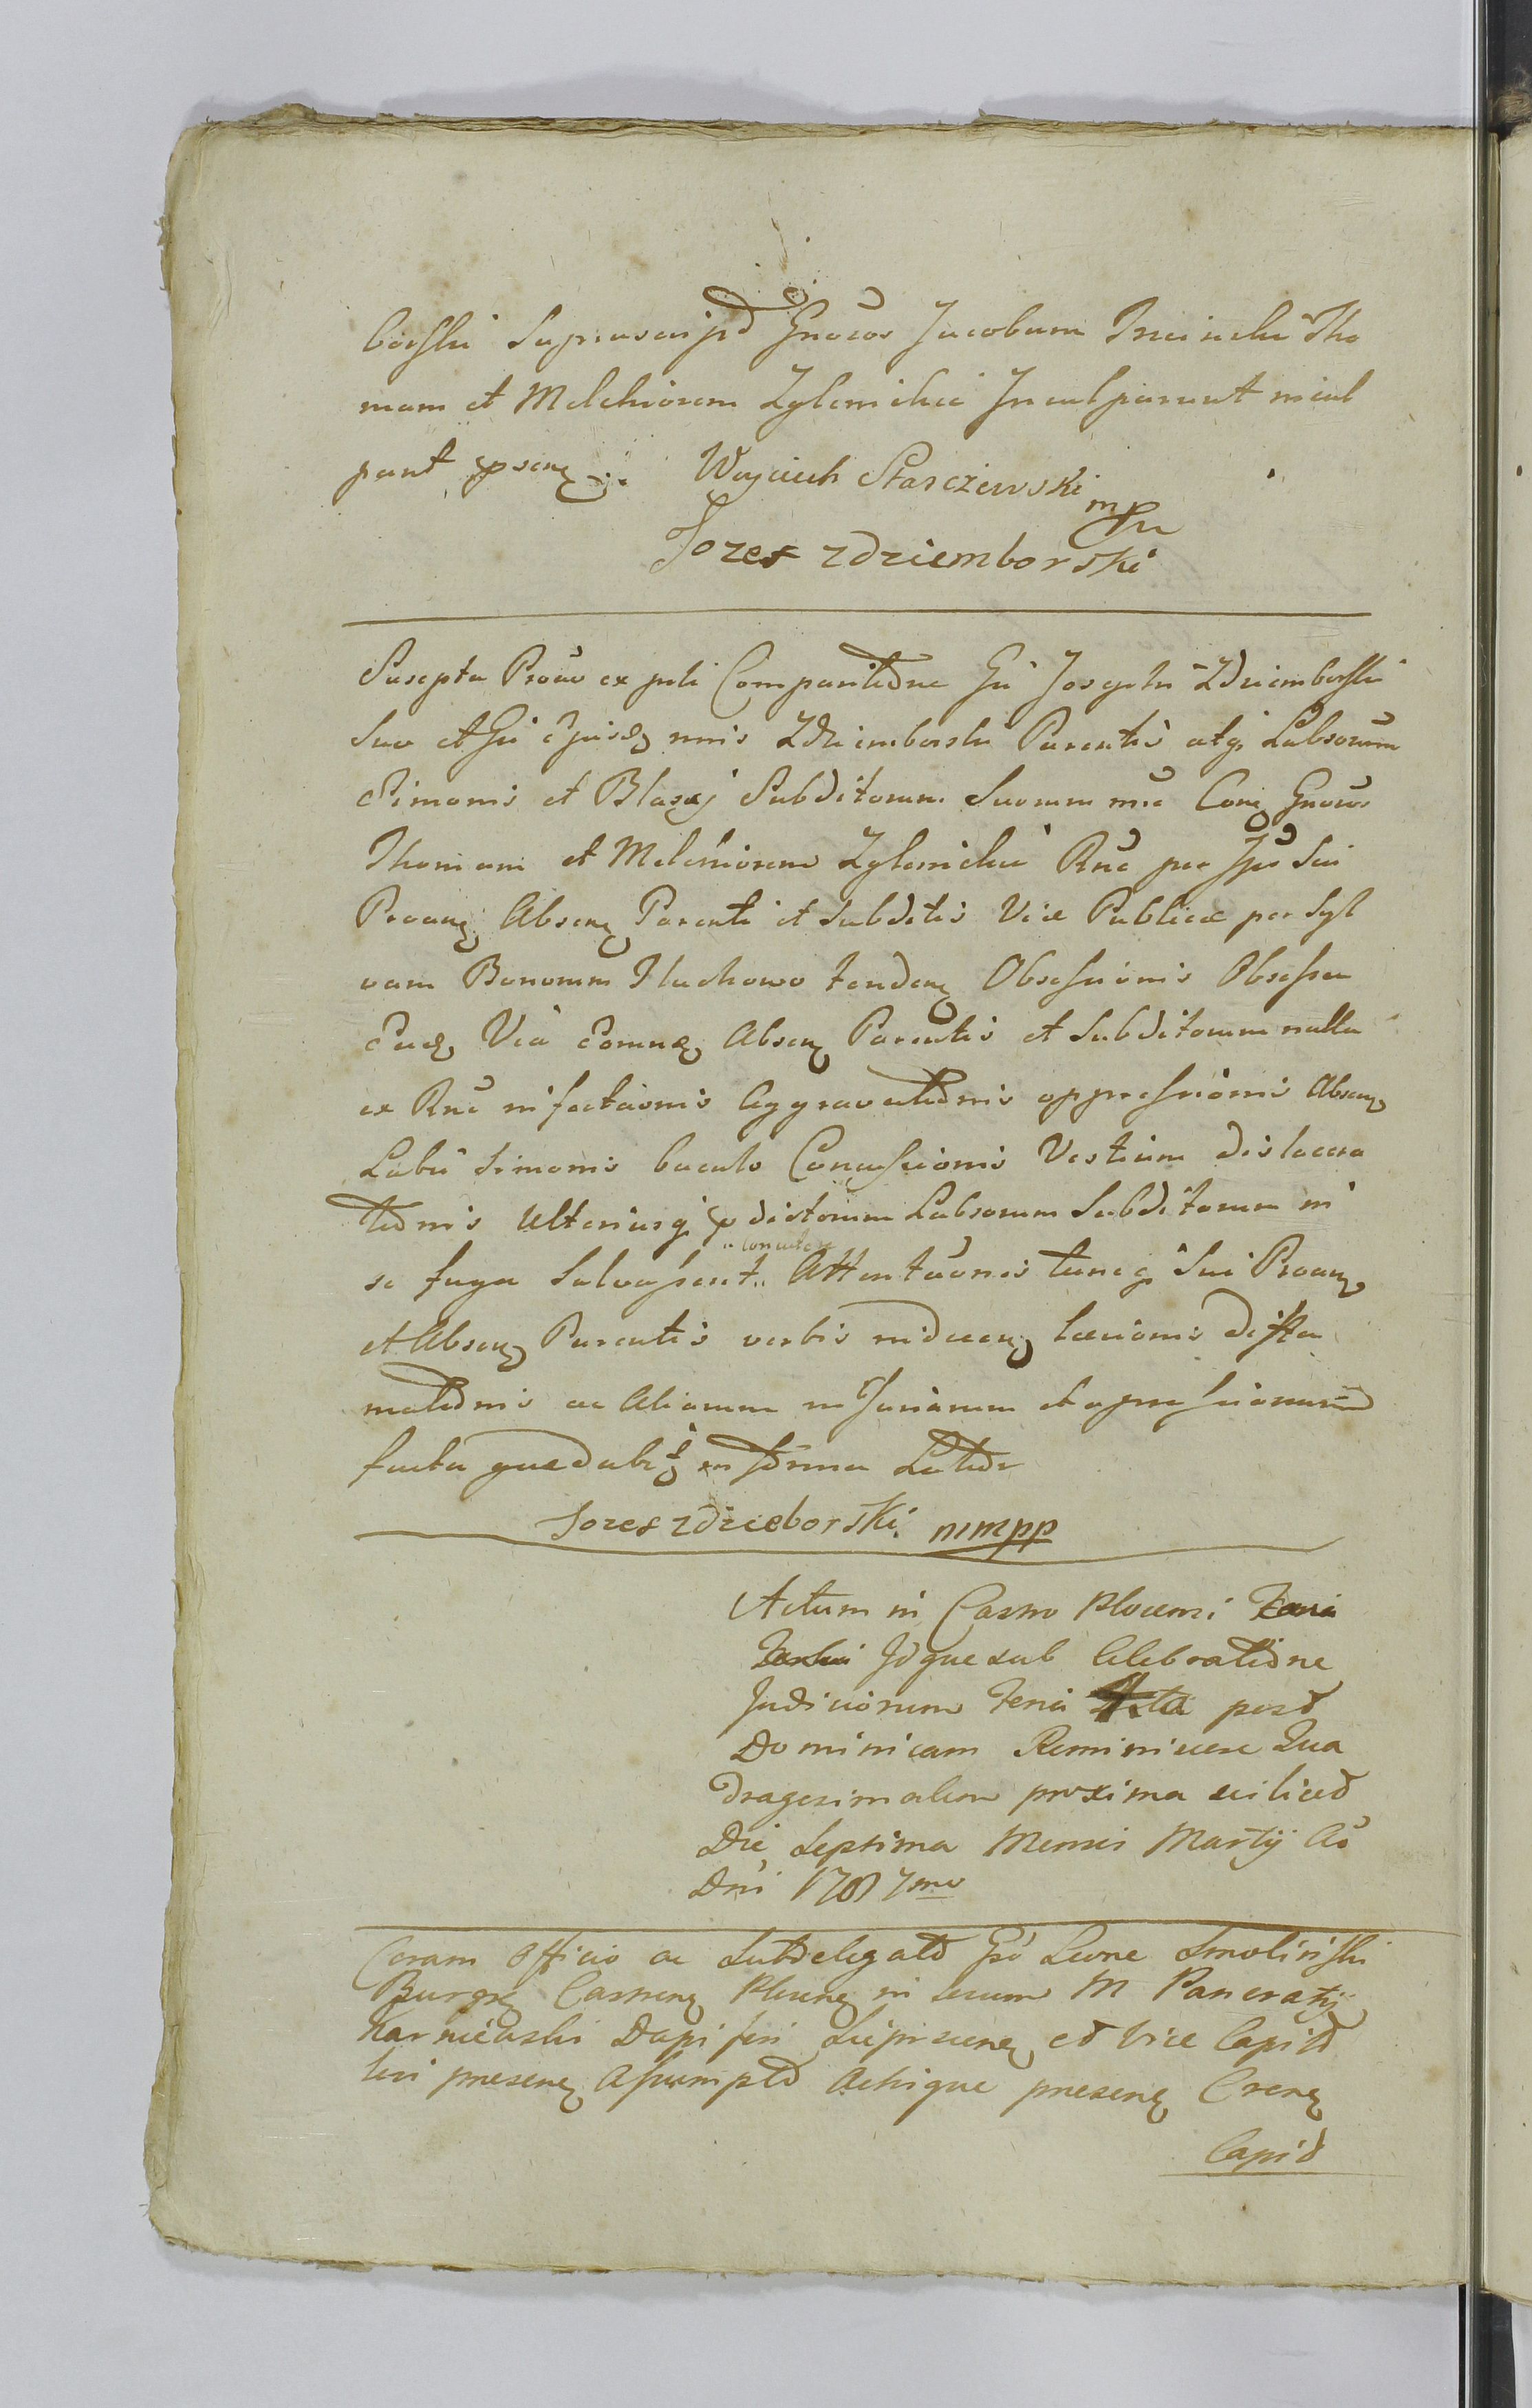 borski Suprascrip͠t Gnosos Jacobum Trzcinski Tho
mam et Melchiorem Zglenickie Inculparunt incul
pant psenę
Woyciech Starczewski
mpp
Jozef zdziemborski
Suscepta Proao ex pñti Comparitiõne Gñi Josephi Zdziemborski
Suo et Gñi ejusdę nnis Zdziemborski Parentis atqꝫ Labsorum
Simonis et Blasÿ Subditorum Suorum nnie Conę Gnosos
Thomam et Melchiorem Zglenickie Rñe per Ipõs Sui
Proanę Absenę Parenti et Subditis Viæ Publicæ per Syl
vam Bonorum Tluchowo tendenę Obsessionis Obsessa
Eadę Via Absenę Parentis et Subditorum nulla
ex Rñe infectaonis Aggravatiõnis oppressionis Absenę
Labū Simonis baculo Concussionis Vestium dislacera
tiõnis Ulteriusqꝫ pdictorum Labsorum Subditorum ni
se fuga Salvassent Attentaonis tuncqꝫ Sui Proanę
et Absenę Parentis verbis indecenę læsionis diffa
matiõnis ac Aliarum injuriarum et opressionum
facta quedabiꝫ in forma Latiõr
Jozef zdzieborski mmpp
Actum in Casrro Plocensi Feria
Idque sub Celebratiõne
Judiciorum Feria post
Dominicam Reminiscere Qua
dragesimalem proxima scilicet
Die Septima Mensis Martÿ Aõ
Dni 1787mo
Coram Officio ac Subdelegatõ Gsõ Leone Smolinski
Burgrę Casrrenę Plocenę in locum M Pancratÿ
Karniewski Dapiferi et Vice Capitõ
loci præsenę Assumptõ Actisque præsenę Crenę
Capit